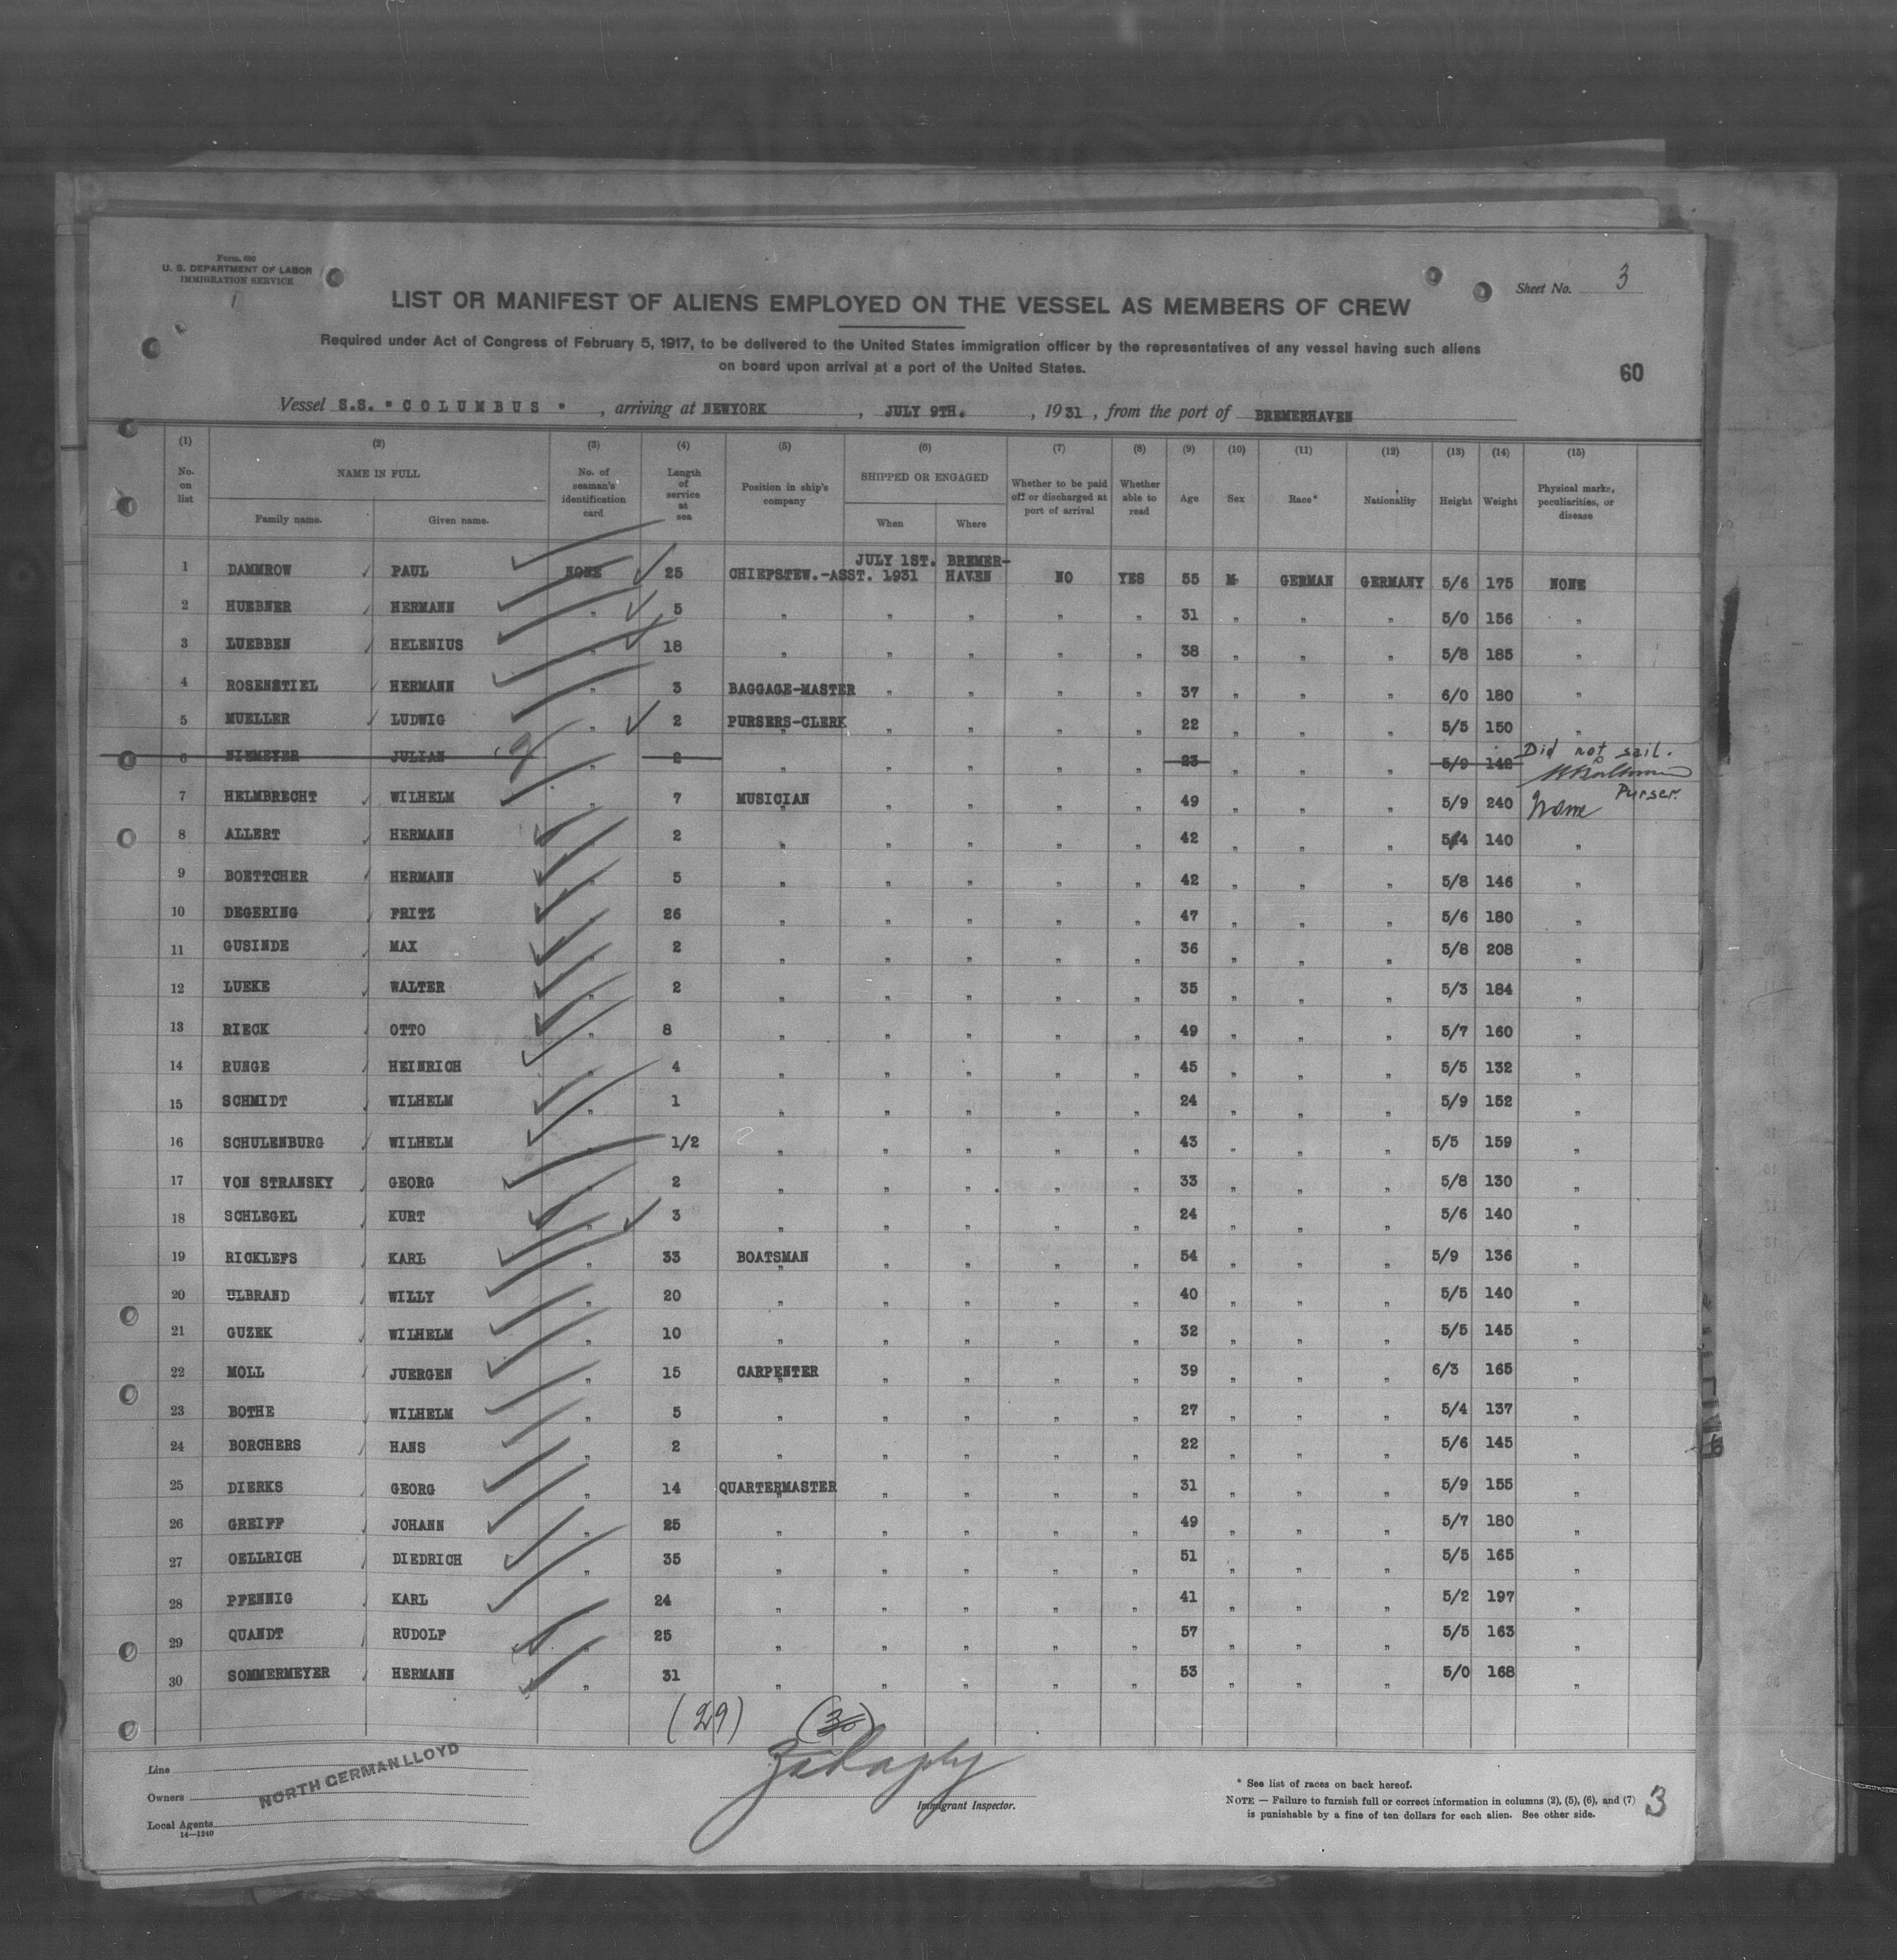 Form. 680
U. S. DEPARTMENT OF LABOR
IMMIGRATION SERVICE
Sheet No. 3
LIST OR MANIFEST OF ALIENS EMPLOYED ON THE VESSEL AS MEMBERS OF CREW
Required under Act of Congress of February 5, 1917, to be delivered to the United States immigration officer by the representatives of any vessel having such aliens
on board upon arrival at a port of the United States.
60
Vessel S.S. "COLUMBUS" , arriving at NEWYORK , JULY 9TH. , 1931 , from the port of BREMERHAVEN
(1) (2) (3) (4) (5) (6) (7) (8) (9) (10) (11) (12) (13) (14) (15)
No. on list NAME IN FULL Family name. Given name. No. of seaman's identification card Length of service at sea Position in ship's company SHIPPED OR ENGAGED When Where Whether to be paid off or discharged at port of arrival Whether able to read Age Sex Race* Nationality Height Weight Physical marks, peculiarities, or disease
1 DAMMROW PAUL NONE 25 CHIEFSTEW.-ASST. JULY 1ST. 1931 BREMER-HAVEN NO YES 55 M GERMAN GERMANY 5/6 175 NONE
2 HUEBNER HERMANN " 5 " " " " " 31 " " " 5/0 156 "
3 LUEBBEN HELENIUS " 18 " " " " " 38 " " " 5/8 185 "
4 ROSENSTIEL HERMANN " 3 BAGGAGE-MASTER " " " " 37 " " " 6/0 180 "
5 MUELLER LUDWIG " 2 PURSERS-CLERK " " " " 22 " " " 5/5 150 "
6 NIEMEYER JULIAN " 2 " " " " " 23 " " " 5/9 142 Did not sail.
Purser.
7 HELMBRECHT WILHELM " 7 MUSICIAN " " " " 49 " " " 5/9 240 None
8 ALLERT HERMANN " 2 " " " " " 42 " " " 5/4 140 "
9 BOETTCHER HERMANN " 5 " " " " " 42 " " " 5/8 146 "
10 DEGERING FRITZ " 26 " " " " " 47 " " " 5/6 180 "
11 GUSINDE MAX " 2 " " " " " 36 " " " 5/8 208 "
12 LUEKE WALTER " 2 " " " " " 35 " " " 5/3 184 "
13 RIECK OTTO " 8 " " " " " 49 " " " 5/7 160 "
14 RUNGE HEINRICH " 4 " " " " " 45 " " " 5/5 132 "
15 SCHMIDT WILHELM " 1 " " " " " 24 " " " 5/9 152 "
16 SCHULENBURG WILHELM " 1/2 " " " " " 43 " " " 5/5 159 "
17 VON STRANSKY GEORG " 2 " " " " " 33 " " " 5/8 130 "
18 SCHLEGEL KURT " 3 " " " " " 24 " " " 5/6 140 "
19 RICKLEFS KARL " 33 BOATSMAN " " " " 54 " " " 5/9 136 "
20 ULBRAND WILLY " 20 " " " " " 40 " " " 5/5 140 "
21 GUZEK WILHELM " 10 " " " " " 32 " " " 5/5 145 "
22 MOLL JUERGEN " 15 CARPENTER " " " " 39 " " " 6/3 165 "
23 BOTHE WILHELM " 5 " " " " " 27 " " " 5/4 137 "
24 BORCHERS HANS " 2 " " " " " 22 " " " 5/6 145 "
25 DIERKS GEORG " 14 QUARTERMASTER " " " " 31 " " " 5/9 155 "
26 GREIFF JOHANN " 25 " " " " " 49 " " " 5/7 180 "
27 OELLRICH DIEDRICH " 35 " " " " " 51 " " " 5/5 165 "
28 PFENNIG KARL " 24 " " " " " 41 " " " 5/2 197 "
29 QUANDT RUDOLF " 25 " " " " " 57 " " " 5/5 163 "
30 SOMMERMEYER HERMANN " 31 " " " " " 53 " " " 5/0 168 "
(29) (30)
Line
Owners
Local Agents
14—1240
NORTH GERMAN LLOYD
Immigrant Inspector.
* See list of races on back hereof.
NOTE — Failure to furnish full or correct information in columns (2), (5), (6), and (7)
is punishable by a fine of ten dollars for each alien. See other side.
3